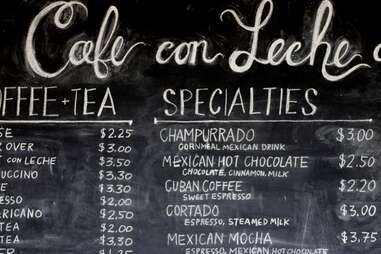 Cafe con Leche
OFFEE + TEA
SE $2.25
OVER $3.00
CON LECHE $3.50
UCCINO $3.30
E $3.30
ESSO $2.00
RICANO $2.50
TEA $2.00
TEA $3.30
ER
SPECIALTIES
CHAMPURRADO $3.00
CORNMEAL MEXICAN DRINK
MEXICAN HOT CHOCOLATE $2.50
CHOCOLATE, CINNAMON, MILK
CUBAN COFFEE $2.20
SWEET ESPRESSO
CORTADO $3.00
ESPRESSO, STEAMED MILK
MEXICAN MOCHA $3.75
ESPRESSO, MEXICAN HOT CHOCOLATE